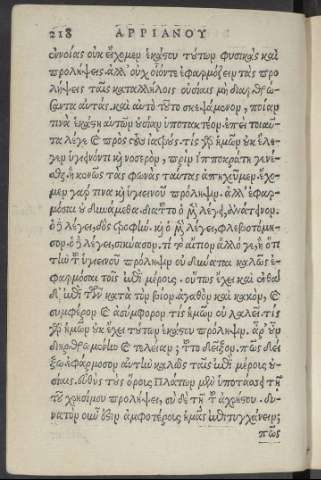 218 ΑΡΡΙΑΝΟΥ
ἐννοίας οὐκ ἔχομεν ἑκάστου τούτων φυσικὰς καὶ
προλήψεις. ἀλλ' οὐχ οἷόντε ἐφαρμόζειν τὰς προ
λήψεις ταῖς καταλλήλοις οὐσίαις μὴ διαρθρώ-
σαντα αὐτὰς. καὶ αὐτὸ τοῦτο σκεψάμενον, ποίαν
τινὰ ἑκάστῃ αὐτῶν οὐσίαν ὑποτακτέον. ἐπεὶ τοιαῦ-
τα λέγε καὶ πρὸς τοὺς ἰατρούς. τίς γὰρ ἡμῶν οὐκ ἔλε
γεν ὑγιεινόν τι καὶ νοσερόν, πρὶν ἱπποκράτη γενέ-
σθαι. ἢ κενῶς τὰς φωνὰς ταύτας ἀπηχοῦμεν. ἔχο-
μεν γάρ τινα καὶ ὑγιεινοῦ πρόληψιν. ἀλλ' ἐφαρ-
μόσαι οὐ δυνάμεθα. διατοῦτο ὁ μὲν λέγει, ἀνάτεινον.
ὁ δὲ λέγει, δὸς τροφήν. καὶ ὁ μὲν λέγει, φλεβοτόμη-
σον. ὁ δὲ λέγει, σικύασον. τί τὸ αἴτιον ἄλλο γε, ἢ ὅτι
τὴν τοῦ ὑγιεινοῦ πρόληψιν οὐ δύναται καλῶς ἐ-
φαρμόσαι τοῖς ἐπὶ μέρους. οὕτως ἔχει καὶ ἐνθά
δ' ἐπὶ τῶν κατὰ τὸν βίον. ἀγαθὸν καὶ κακὸν, καὶ
συμφέρον καὶ ἀσύμφορον τίς ἡμῶν οὐ λαλεῖ. τίς
γὰρ ἡμῶν οὐκ ἔχει τούτων ἑκάστου πρόληψιν. ἆρ' οὖν
διηρθρωμένην καὶ τελείαν; τοῦτο δεῖξον. πῶς δεί-
ξω. ἐφάρμοσον αὐτὴν καλῶς ταῖς ἐπὶ μέρους οὐ-
σίαις. εὐθὺς τοὺς ὅρους Πλάτων μὲν ὑποτάσσει τῇ
τοῦ χρησίμου προλήψει, σὺ δὲ τῇ τοῦ ἀχρήστου. δυ-
νατὸν οὖν ἐστιν ἀμφοτέρους ἡμᾶς ἐπιτυγχάνειν;
πῶς